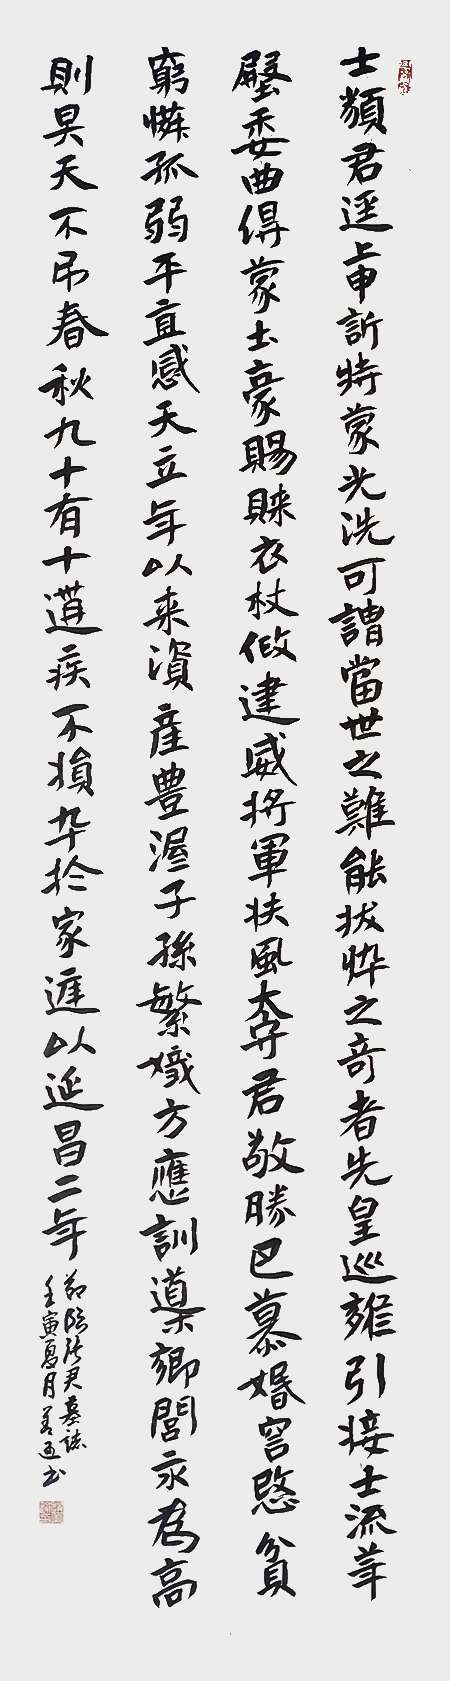 士類君遥申訴特蒙光洗可謂當世之難能拔悴之奇者先皇巡雍引接士流萃
璧委曲得蒙士豪賜賕衣杖假建威將軍扶風太守君敬勝巴慕婚宦愍貧
窮憐孤弱平直感天立年以来資産豊渥子孫繁熾方應訓導鄉閭永為高
則昊天不吊春秋九十有十遘疾不損卒於家遑以延昌二年
節臨張君墓誌
壬寅夏月